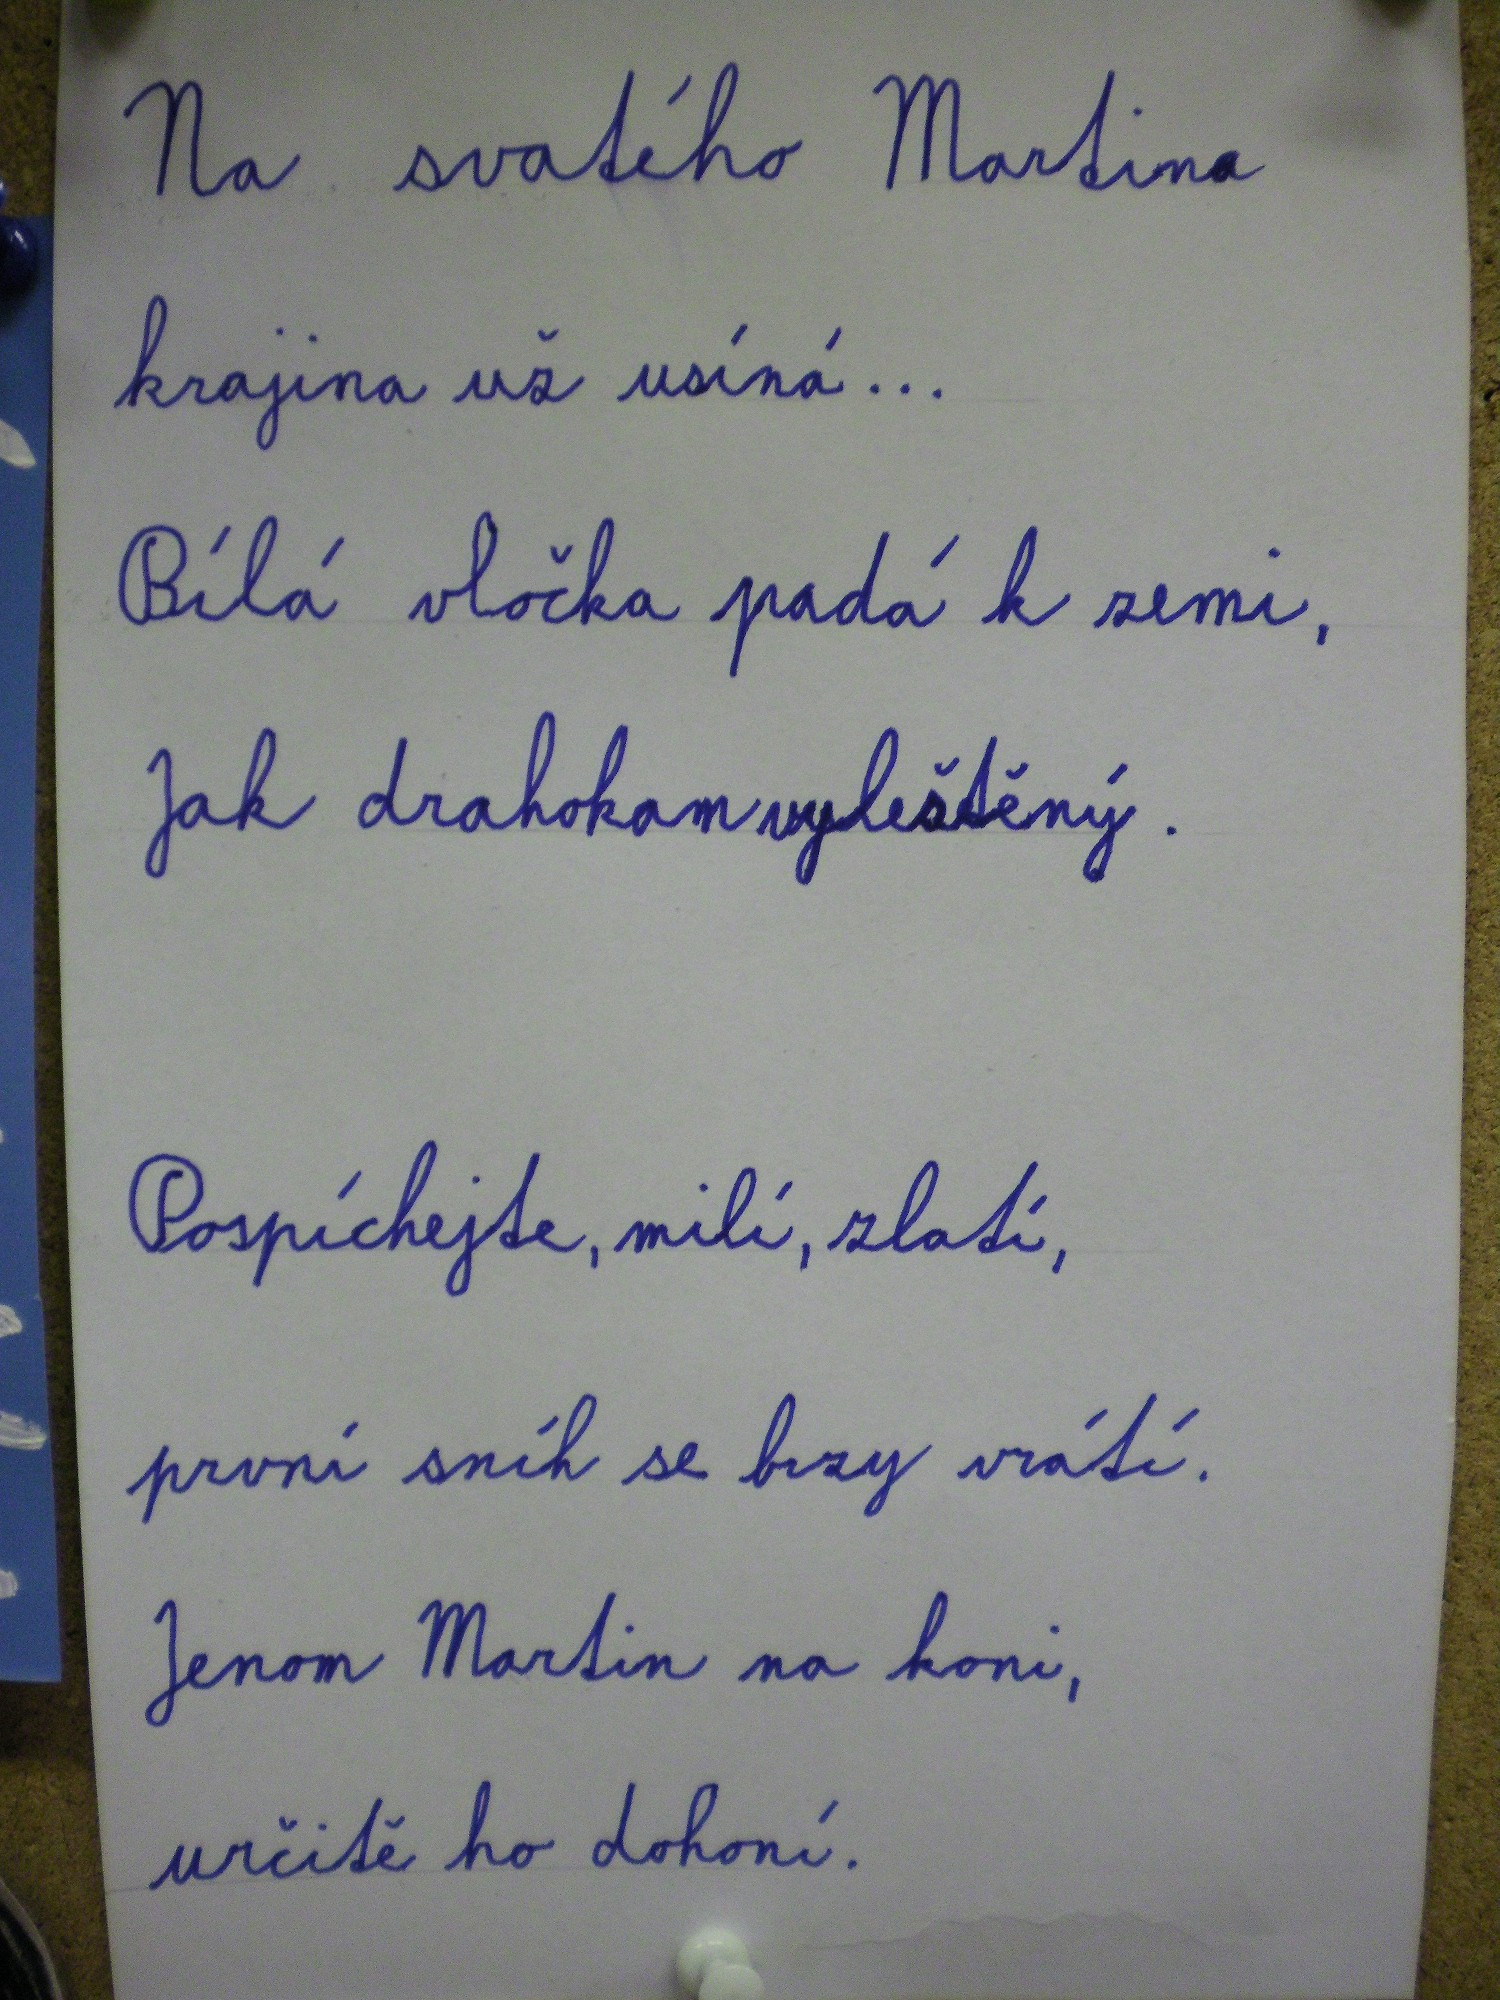 Na svatého Martina
krajina už usíná...
Bílá vločka padá k zemi,
Jak drahokam vyleštěný.
Pospíchejte, milí, zlatí,
první sníh se brzy vrátí.
Jenom Martin na koni,
určitě ho dohoní.